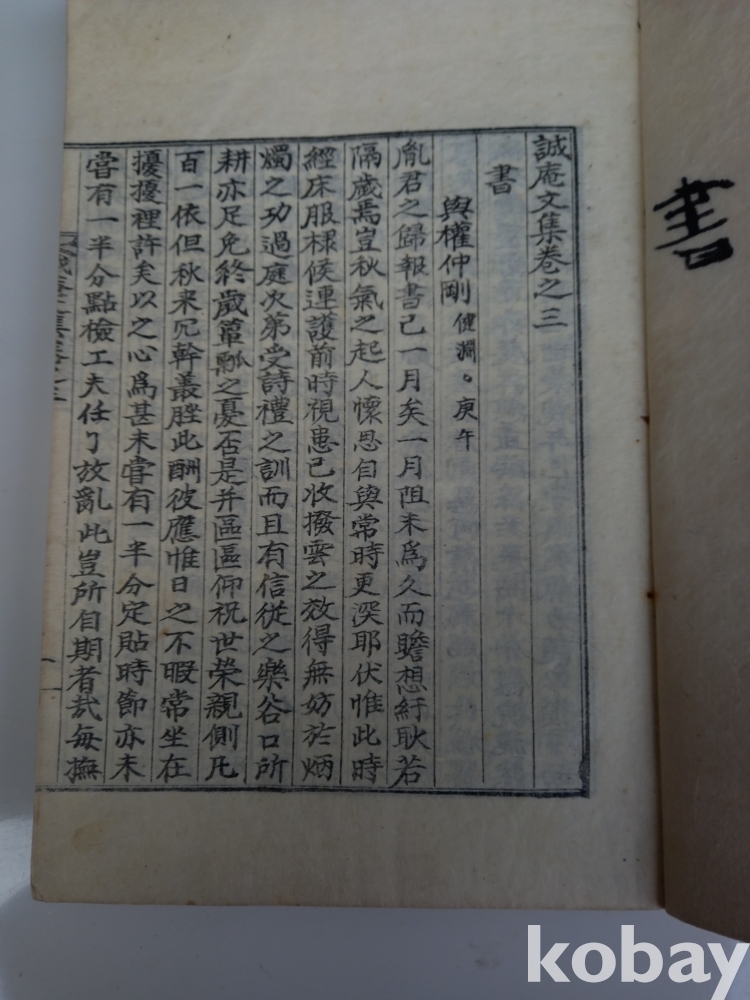 誠庵文集卷之三
書
與權仲剛 健淵。庚午
胤君之歸報書已一月矣一月阻未爲久而瞻想紆耿若
隔歲焉豈秋氣之起人懷思自與常時更深耶伏惟此時
經床服候連護前時視患已收撥雲之效得無妨於炳
燭之功過庭次第受詩禮之訓而且有信從之樂谷口所
耕亦足免終歲簞瓢之憂否是幷區區仰祝世榮親側凡
百一依但秋来冗幹叢脞此酬彼應惟日之不暇常坐在
擾擾裡許矣以之心爲甚未嘗有一半分定貼時節亦未
嘗有一半分點檢工夫任了放亂此豈所自期者哉每撫
書
kobay